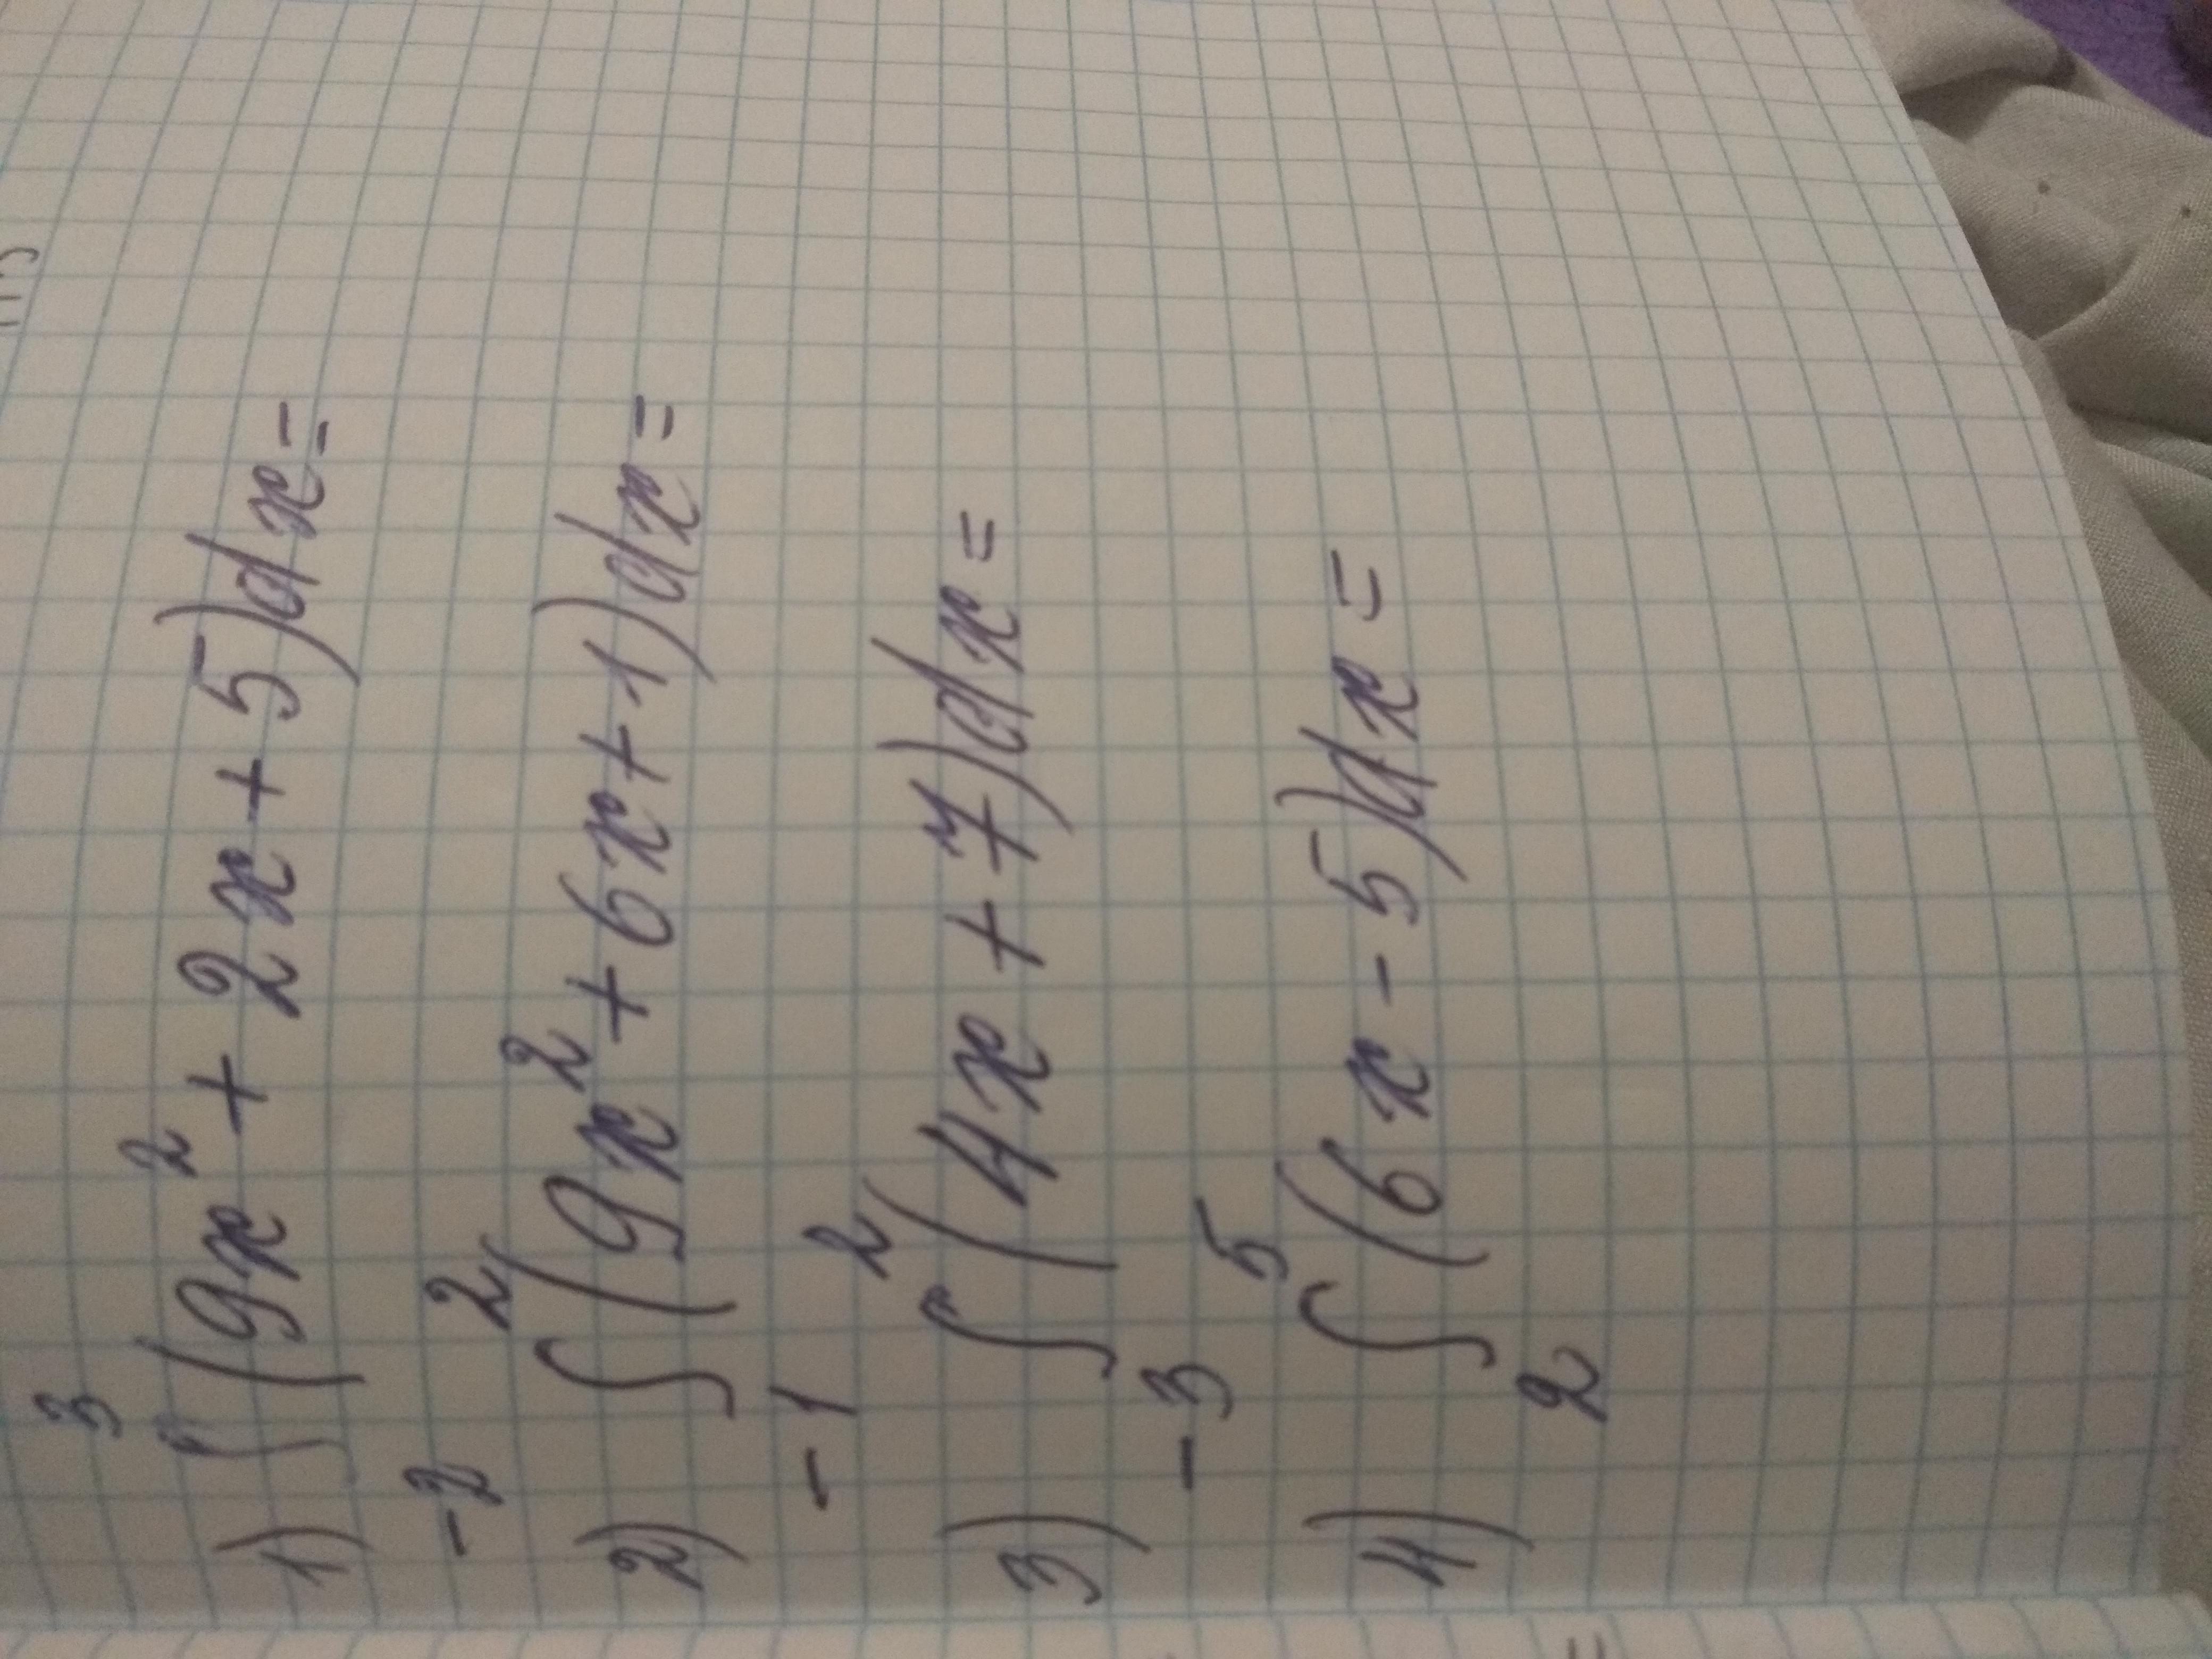 1) ∫₋₂³ (9x² + 2x + 5)dx =
2) ∫₋₁² (9x² + 6x + 1)dx =
3) ∫₋₃² (4x + 7)dx =
4) ∫₂⁵ (6x - 5)dx =